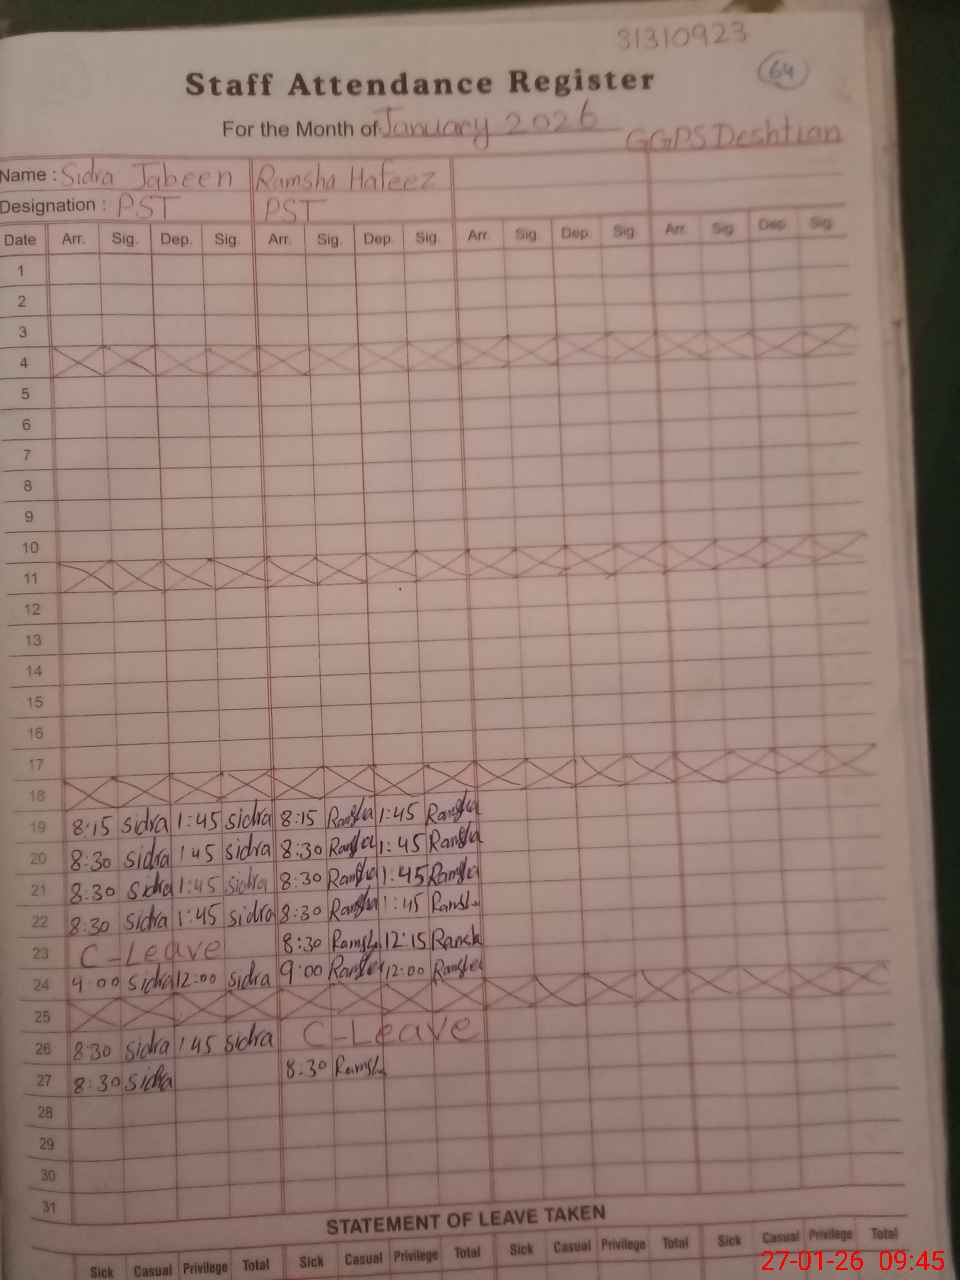 31310923
64
Staff Attendance Register
For the Month of January 2026
GGPS Deshtian
Name : Sidra Jabeen Ramsha Hafeez
Designation : PST PST
Date Arr. Sig. Dep. Sig. Arr. Sig. Dep. Sig. Arr. Sig. Dep. Sig. Arr. Sig. Dep. Sig.
1
2
3
4
5
6
7
8
9
10
11
12
13
14
15
16
17
18
19 8:15 sidra 1:45 sidra 8:15 Ramsha 1:45 Ramsha
20 8:30 sidra 1:45 sidra 8:30 Ramsha 1:45 Ramsha
21 8:30 sidra 1:45 sidra 8:30 Ramsha 1:45 Ramsha
22 8:30 sidra 1:45 sidra 8:30 Ramsha 1:45 Ramsha
23 C-Leave 8:30 Ramsha 12:15 Ramsha
24 9:00 sidra 12:00 sidra 9:00 Ramsha 12:00 Ramsha
25
26 8:30 sidra 1:45 sidra C-Leave
27 8:30 sidra 8:30 Ramsha
28
29
30
31
STATEMENT OF LEAVE TAKEN
Sick Casual Privilege Total Sick Casual Privilege Total Sick Casual Privilege Total Sick Casual Privilege Total
27-01-26 09:45